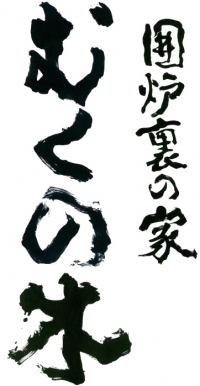 囲炉裏の家
むくの木